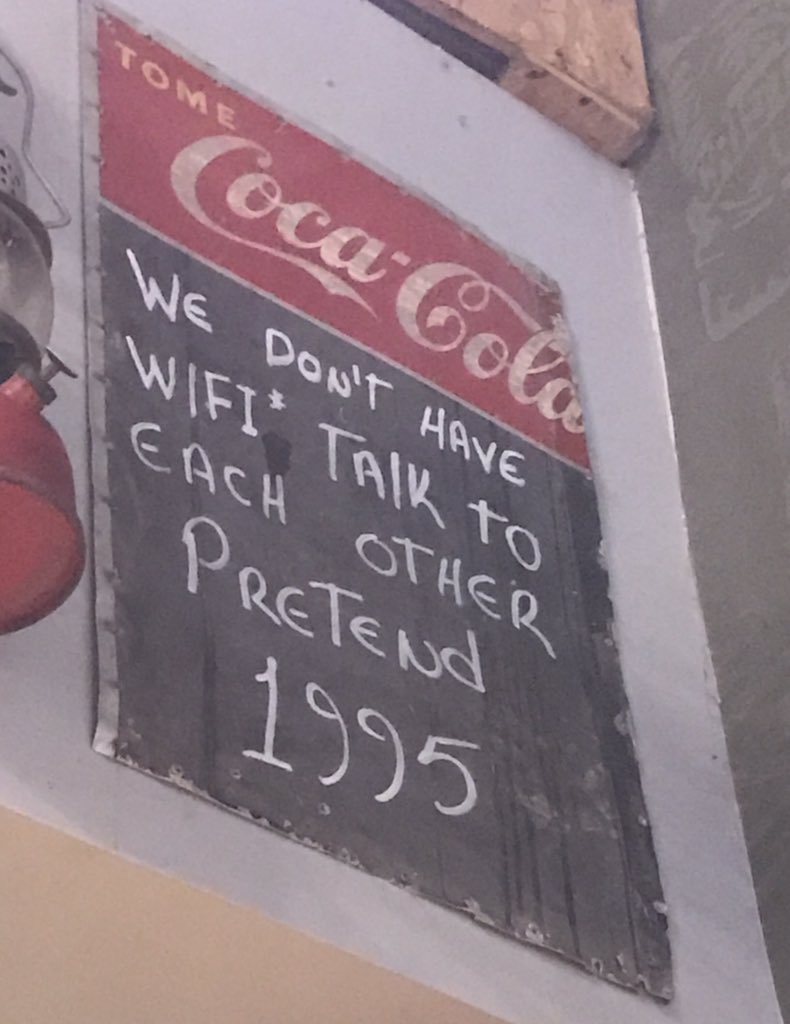 TOME
Coca-Cola
WE DON'T HAVE
WIFI* TALK TO
EACH OTHER
PRETEND
1995